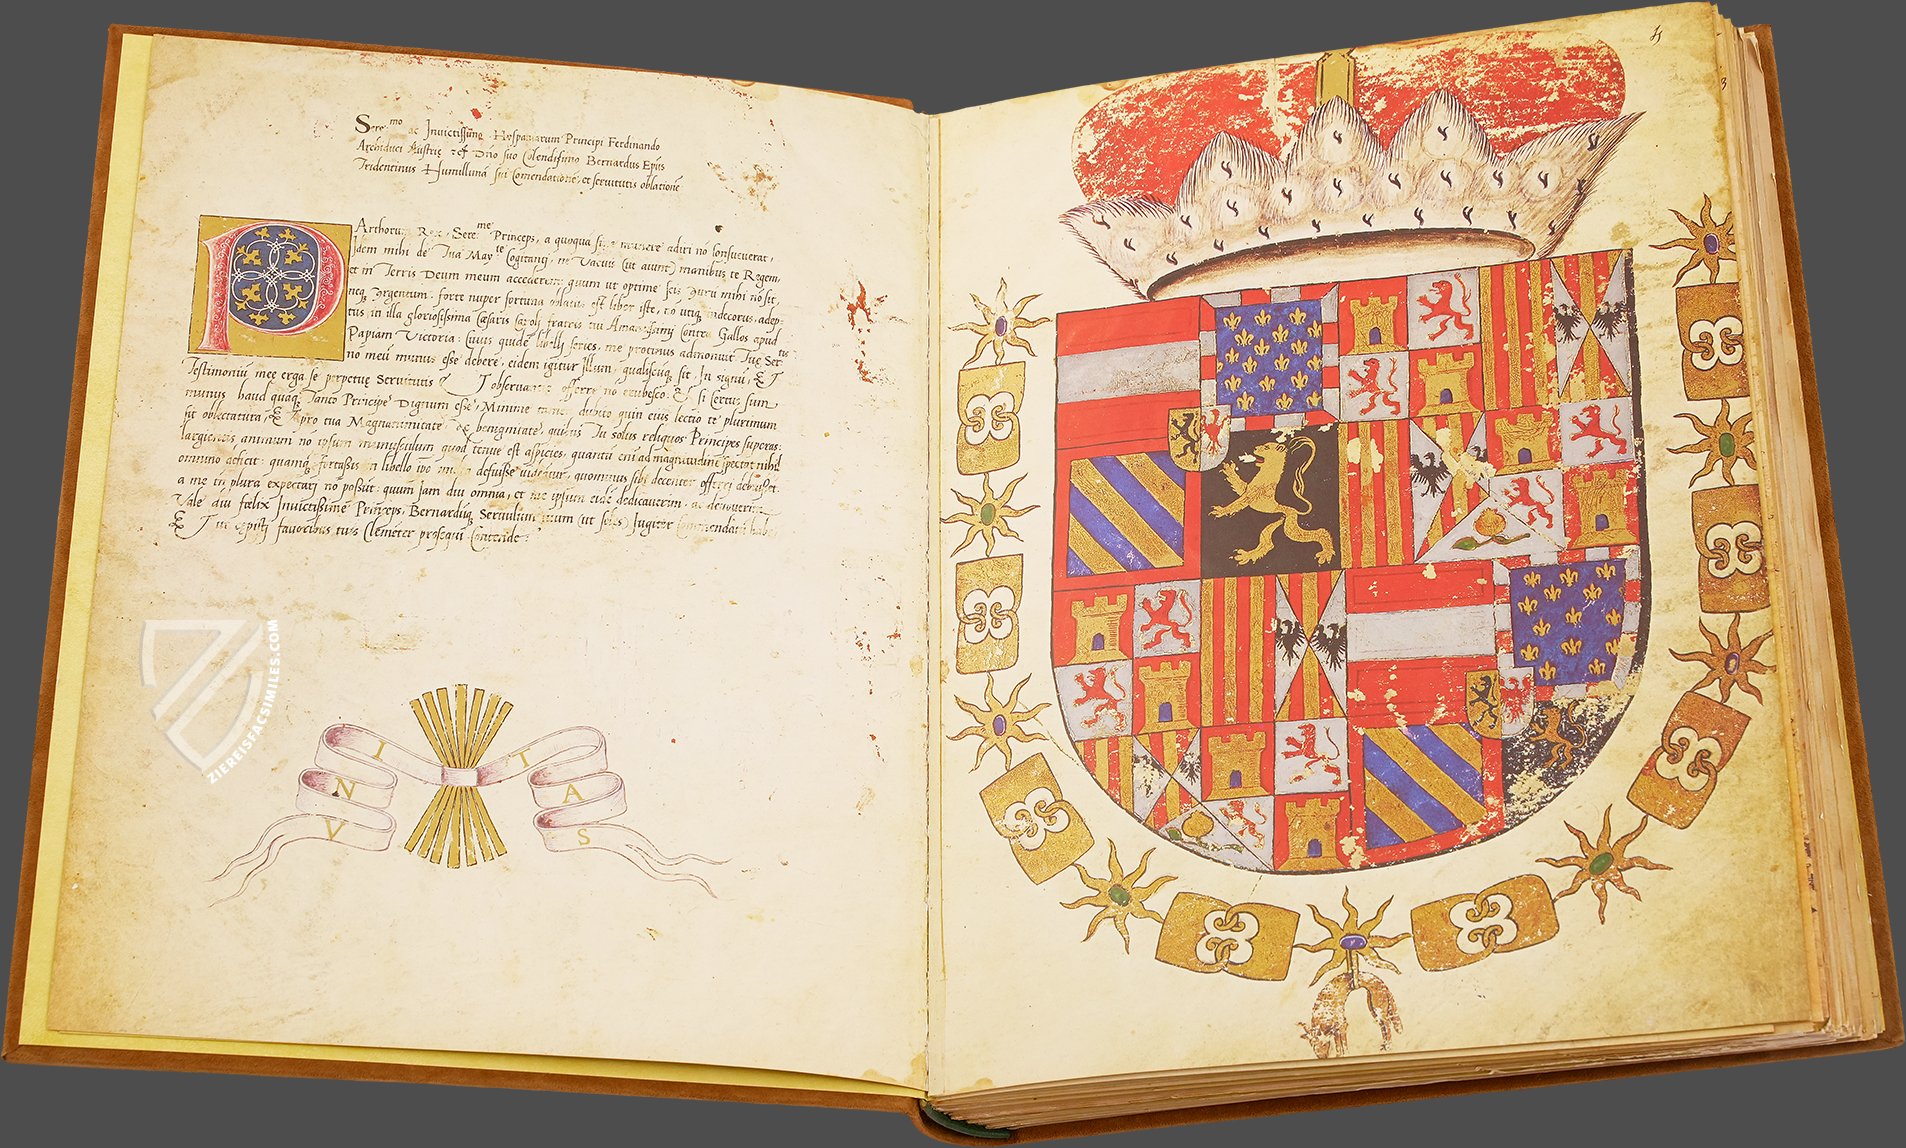 Sere^mo ac Inuictissimo Hyspaniarum Principi Ferdinando
Archiduci Austrię &c͡ Dño suo Colendissimo Bernardus Epũs
Tridentinus Humillimã sui Comendationẽ, et seruitutis oblationẽ
PArthorum Rex, Sere^me Princeps, a quoquã sine munere adiri nõ consueuerat,
Idem mihi de Tua May^te Cogitanti, ne Vacuis (ut aiunt) manibus te Regem,
et in Terris Deum meum accederem: quum ut optime scis Aurũ mihi nõ sit,
neq Argentum: forte nuper fortuna oblatus est liber iste, nõ utiq indecorus, adep-
tus in illa gloriosissima Cæsaris Caroli fratris tui Amantissimi Contra Gallos apud
Papiam Victoria: Cuius quidẽ libelli series, me protinus admonuit Tuę Ser^tis
no meũ munus esse debere, eidem igitur Illum, qualiscuq sit, In signũ, &
Testimoniũ meę erga se perpetuę Seruitutis & obseruantię offerre nõ erubesco. Et si Certus sum
munus haud quaq Tanto Principe Dignum esse, Minime tamen dubito quin eius lectio te plurimum
sit oblectatura, & pro tua Magnanimitate & benignitate, quibus Tu solus reliquos Principes superas:
largientis animum nõ ipsum munusculum quod tenue est aspicies, quantũ eni ad magnitudinẽ spectat nihil
omnino deficit: quamq fortassis in libello ipo multa defuisse uideātur, quominus sibi decenter offerri debuisset.
a me in plura expectari nõ possũt: quum Jam diu omnia, et me ipsum eidẽ dedicauerim, ac deuouerim
Vale diu fœlix Inuictissime Princeps, Bernardũq Seruulum tuum (ut soles) Jugiter Commendatũ habe
Et Tui episti fauoribus tuis Clemẽter prosequi Contende:
VNITAS
ZIEREISFACSIMILES.COM
3